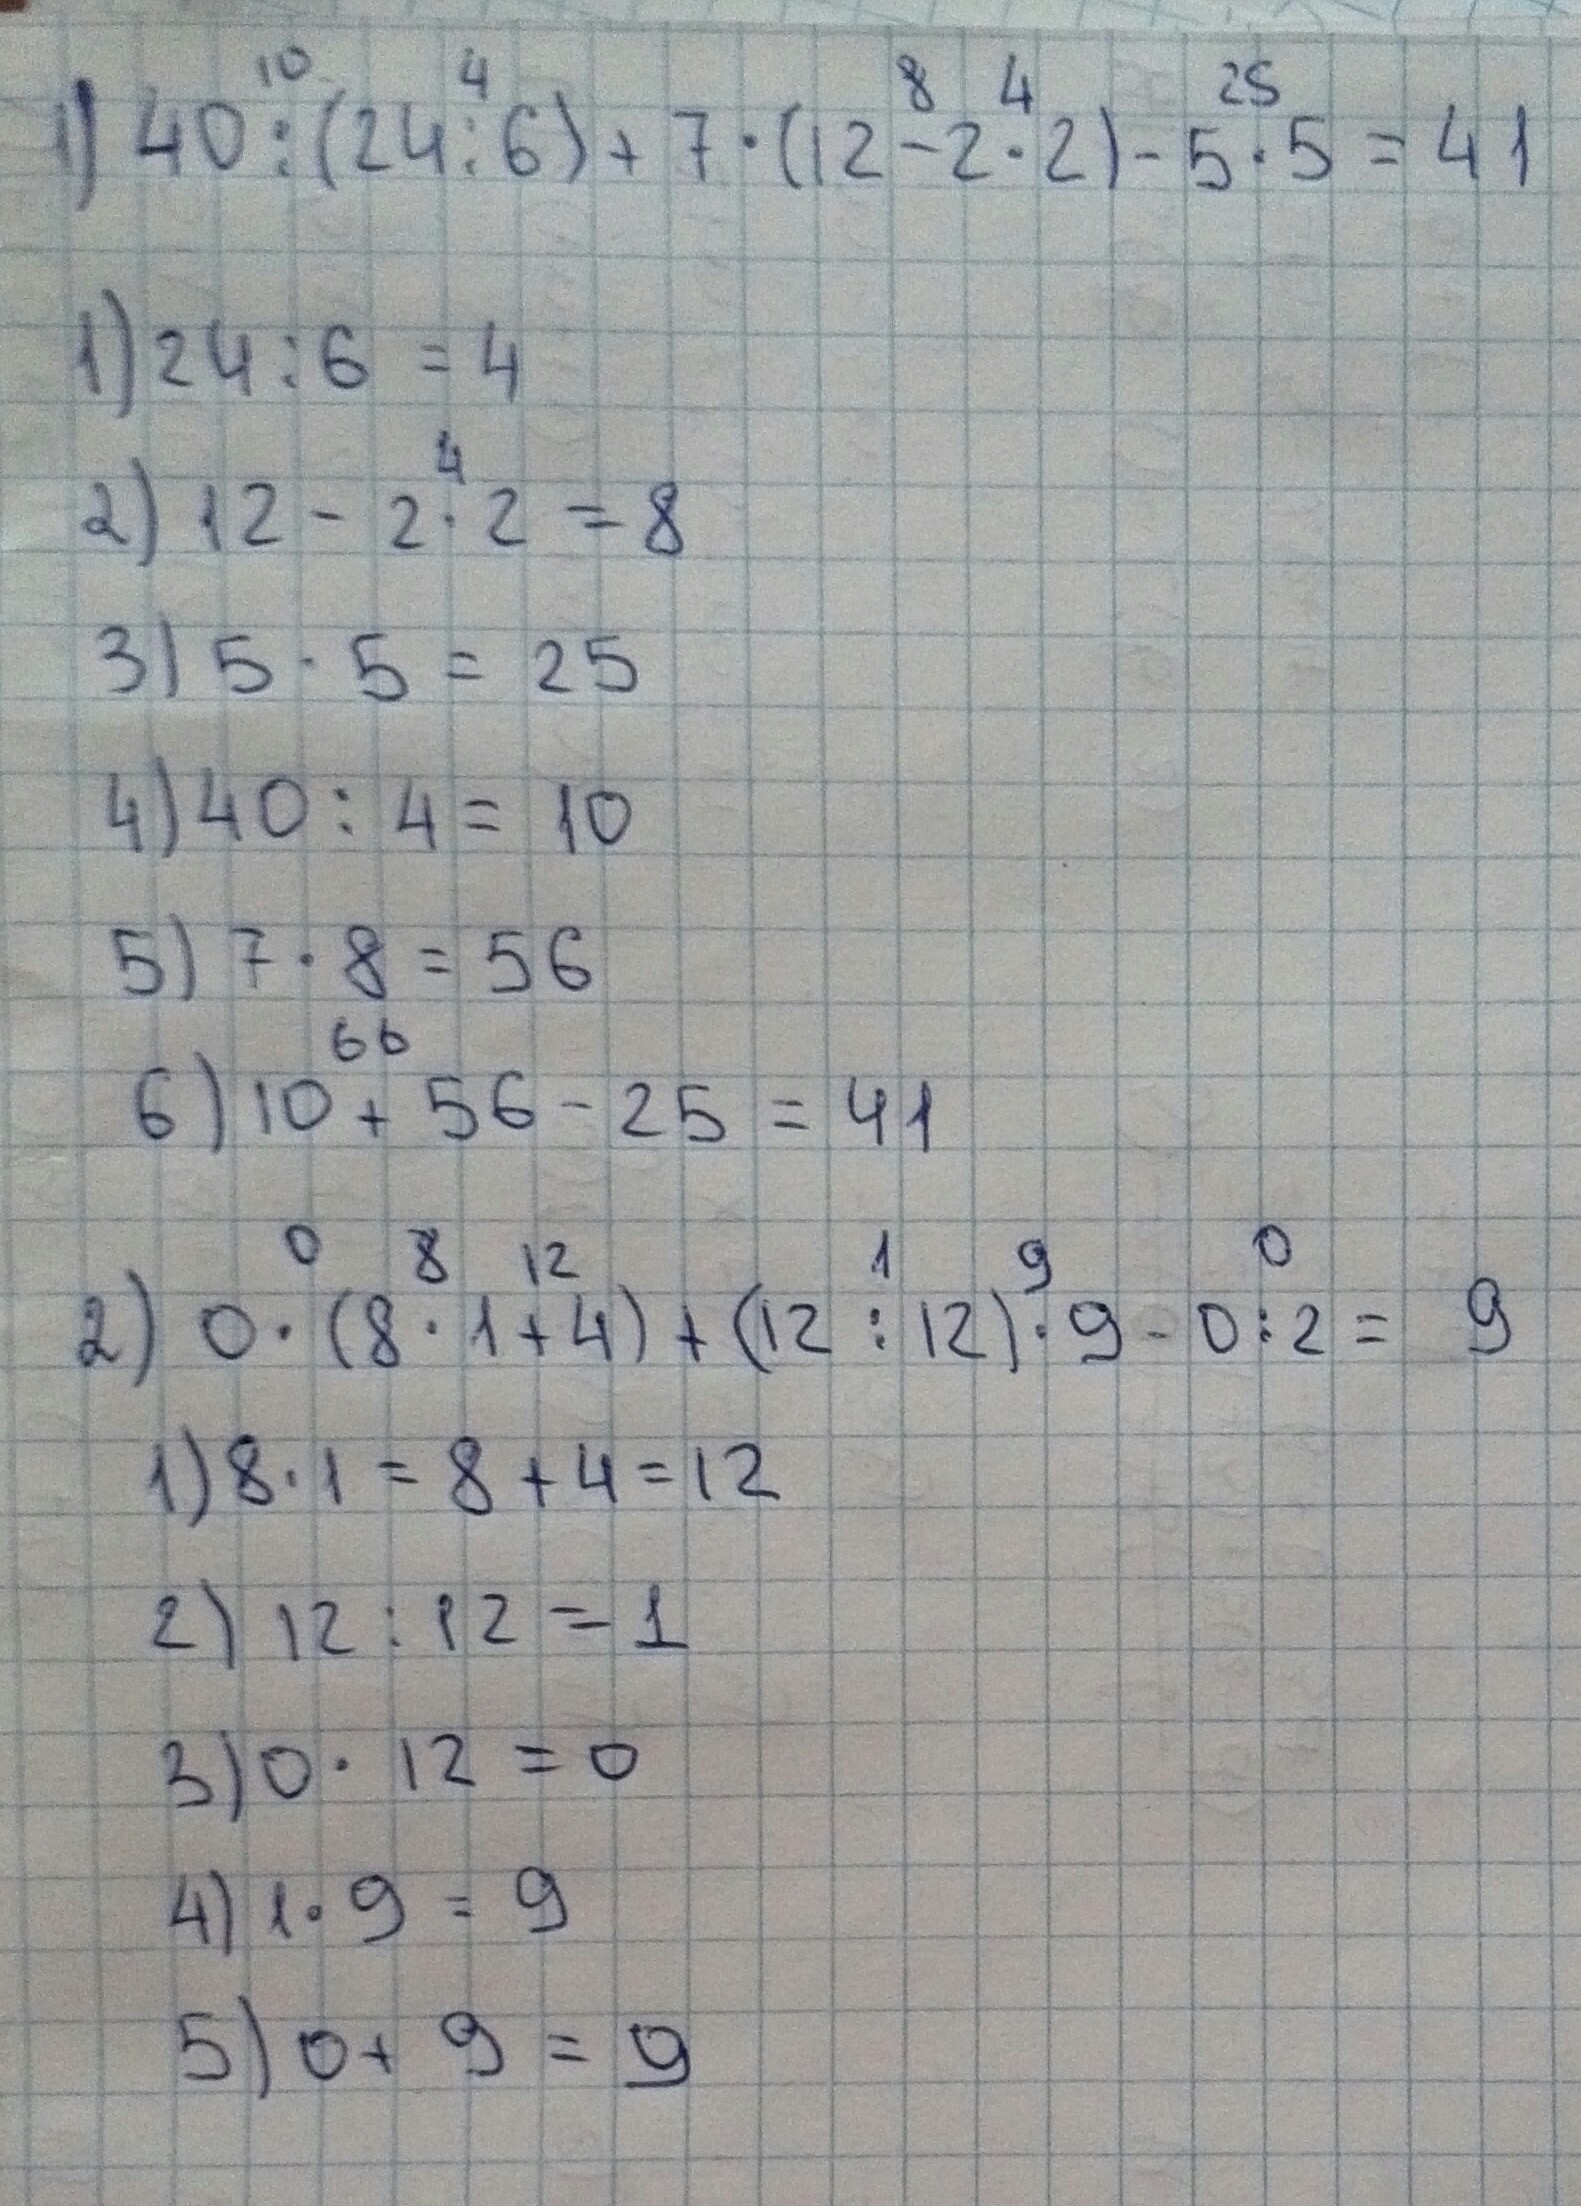 10 4 8 4 25
1) 40 : (24 : 6) + 7 · (12 - 2 · 2) - 5 · 5 = 41
1) 24 : 6 = 4
4
2) 12 - 2 · 2 = 8
3) 5 · 5 = 25
4) 40 : 4 = 10
5) 7 · 8 = 56
66
6) 10 + 56 - 25 = 41
0 8 12 1 9 0
2) 0 · (8 · 1 + 4) + (12 : 12) · 9 - 0 : 2 = 9
1) 8 · 1 = 8 + 4 = 12
2) 12 : 12 = 1
3) 0 · 12 = 0
4) 1 · 9 = 9
5) 0 + 9 = 9